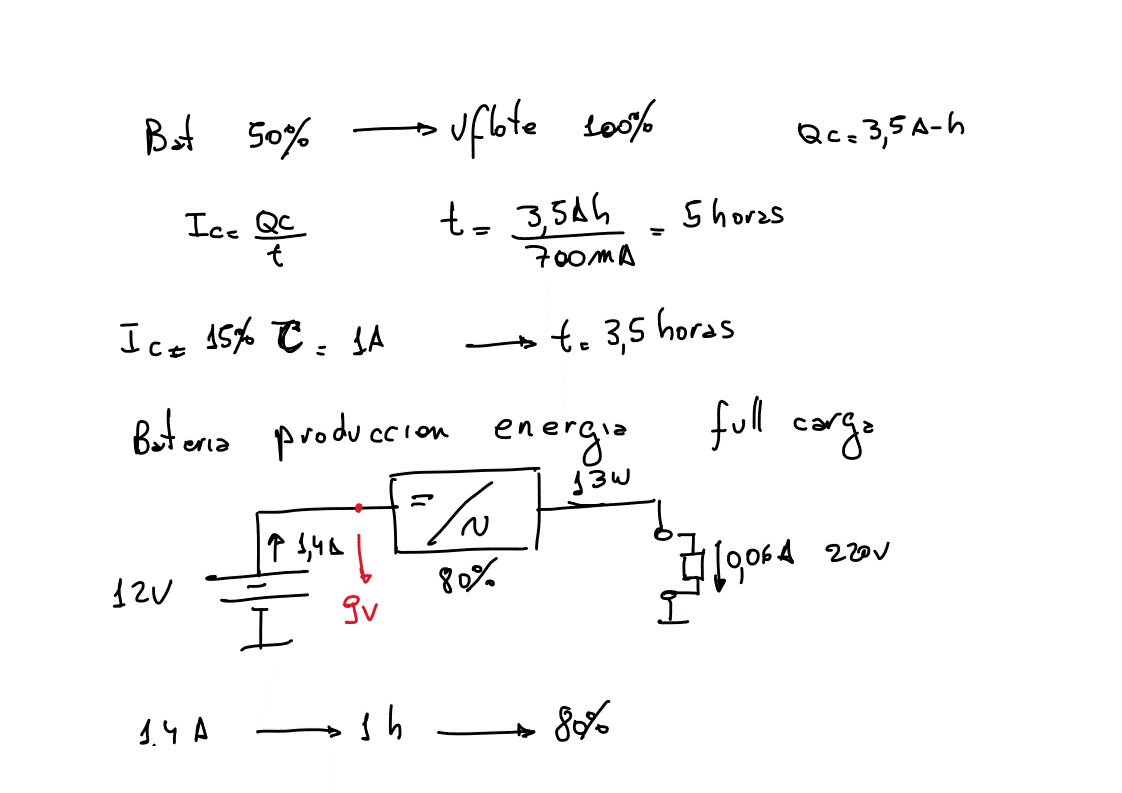 Bat 50% → Vflote 100% Qc = 3,5 A-h
Ic = Qc / t t = 3,5Ah / 700mA = 5 horas
Ic = 15% C = 1A → t = 3,5 horas
Bateria produccion energia full carga
13W
= / ~
↑ 1,4A
0,06A 220V
12V
80%
9V
1.4 A → 1 h → 80%